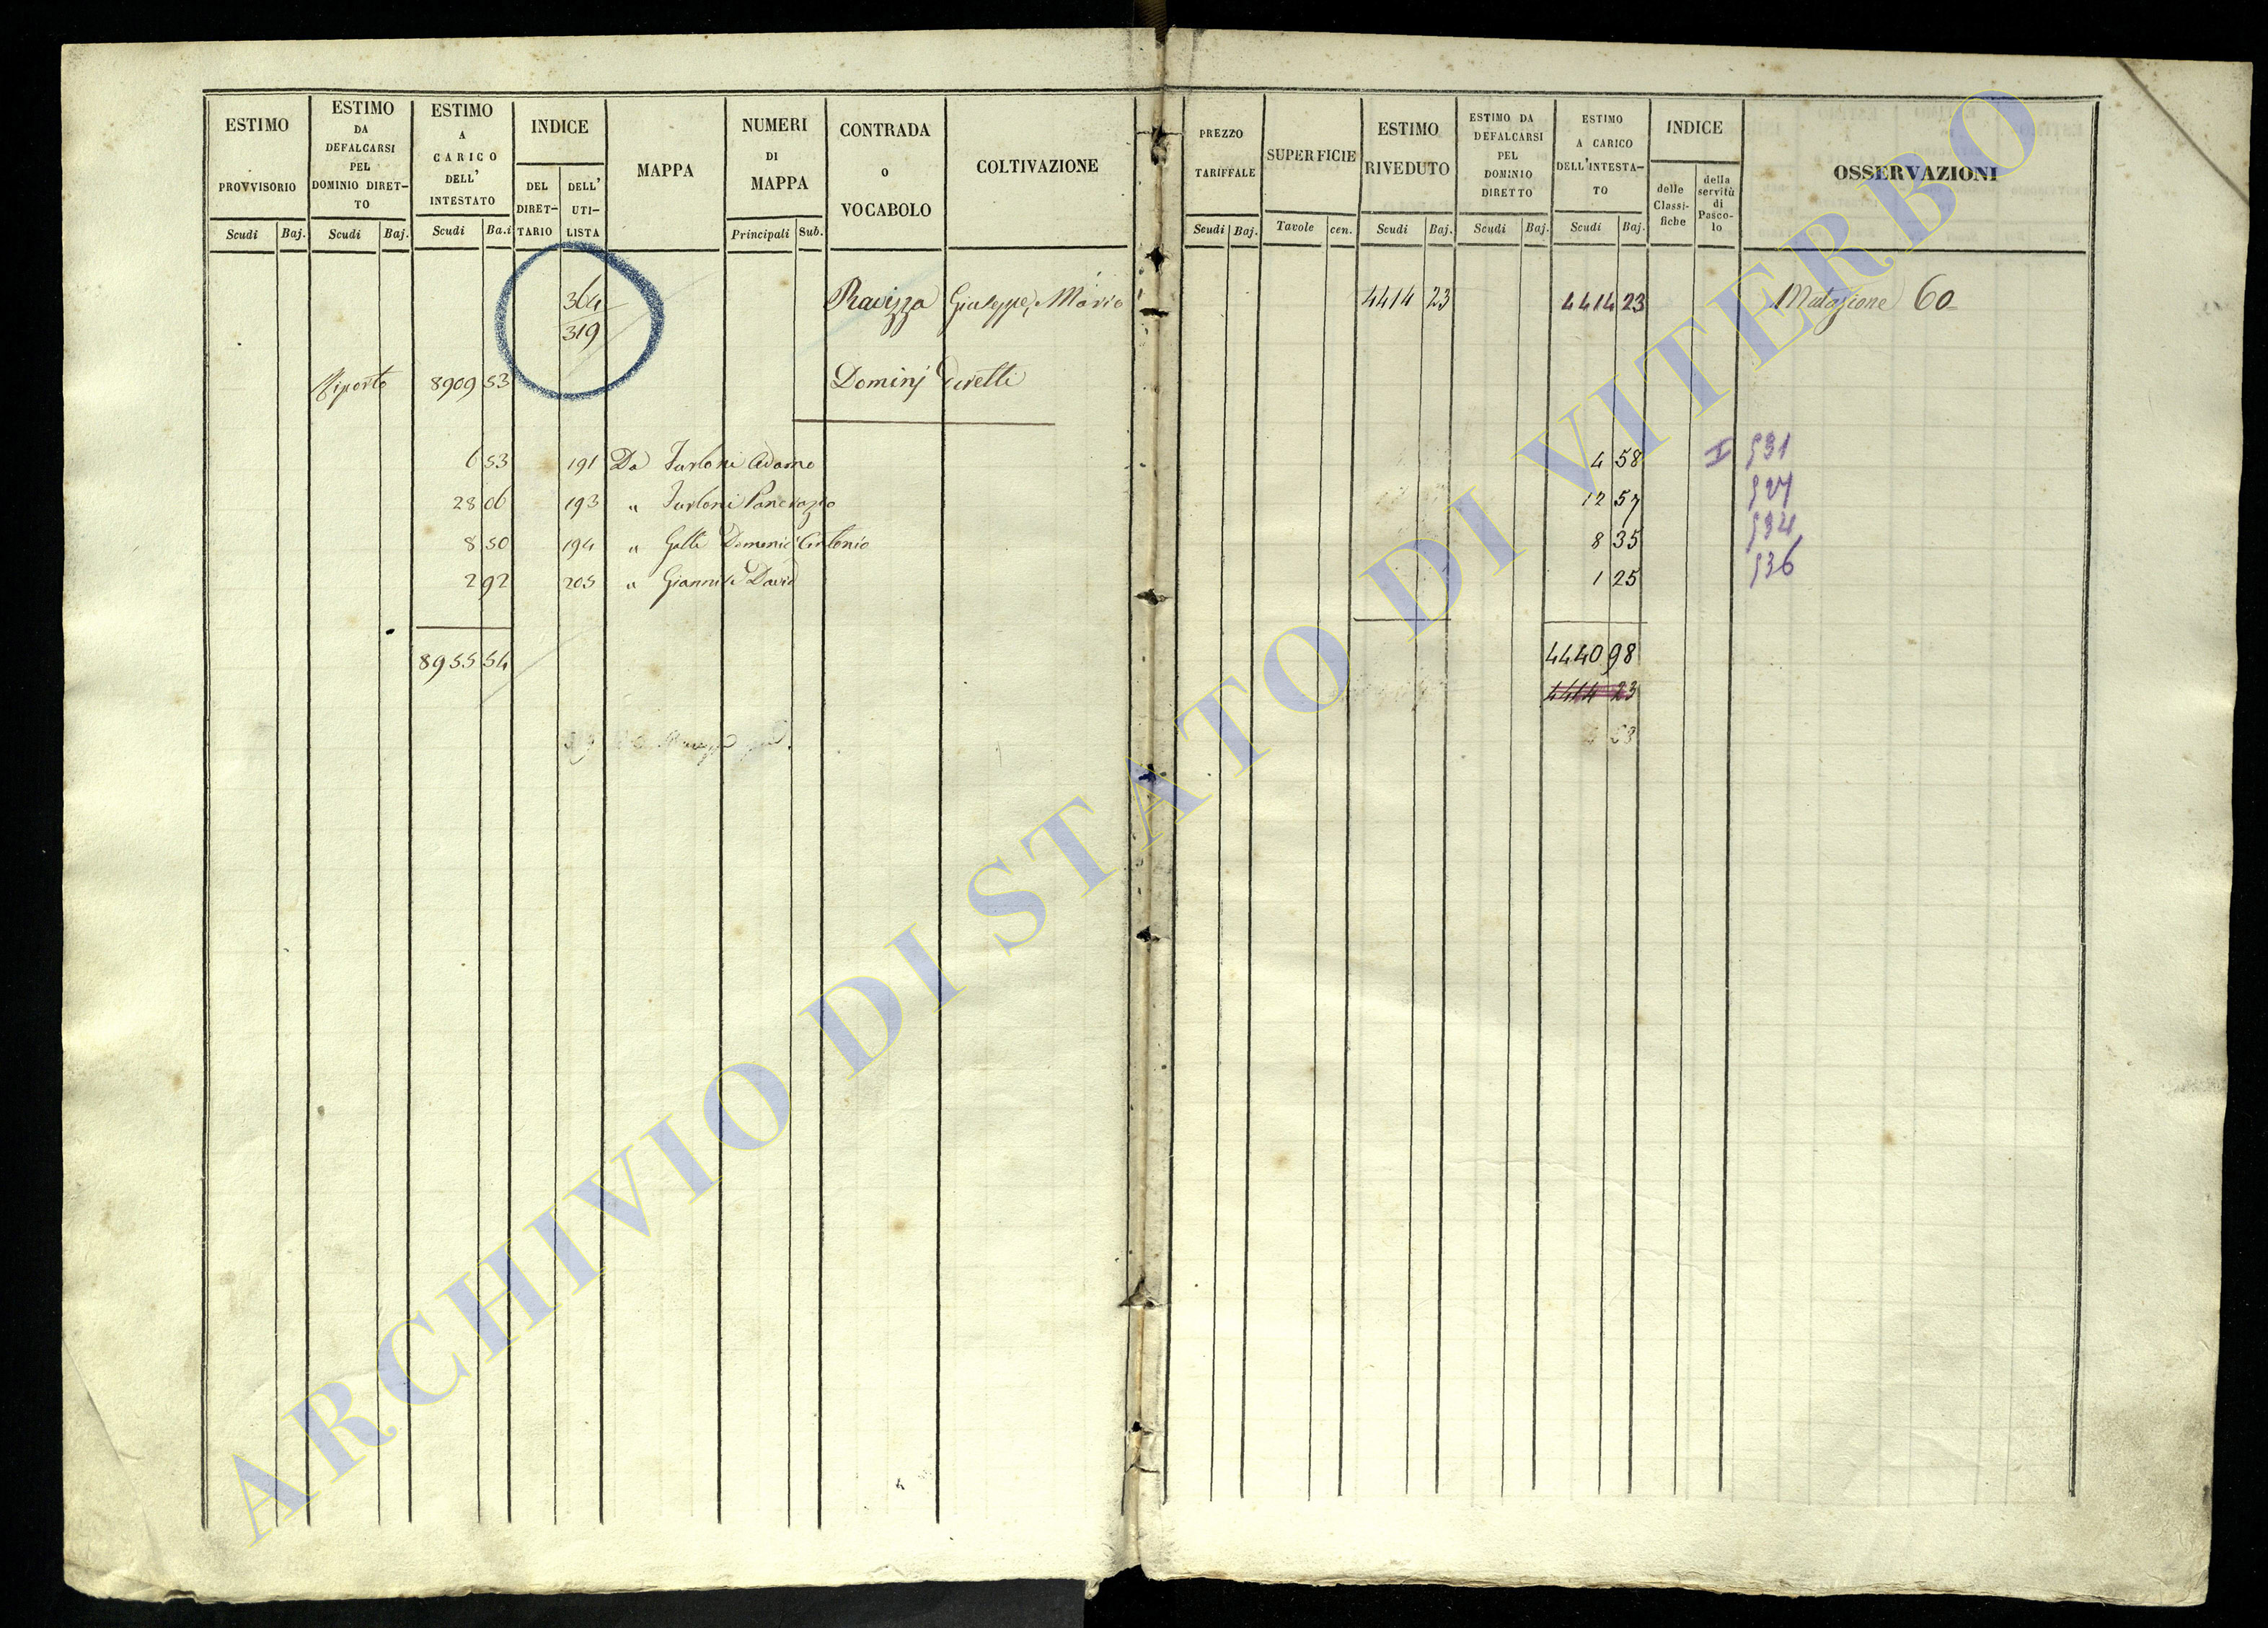 ESTIMO PROVVISORIO
Scudi Baj.
ESTIMO DA DEFALCARSI PEL DOMINIO DIRET-TO
Scudi Baj.
ESTIMO A CARICO DELL' INTESTATO
Scudi Ba.i
INDICE
DEL DIRET-TARIO
DELL' UTI-LISTA
MAPPA
NUMERI DI MAPPA
Principali Sub.
CONTRADA o VOCABOLO
COLTIVAZIONE
PREZZO TARIFFALE
Scudi Baj.
SUPERFICIE
Tavole cen.
ESTIMO RIVEDUTO
Scudi Baj.
ESTIMO DA DEFALCARSI PEL DOMINIO DIRETTO
Scudi Baj.
ESTIMO A CARICO DELL'INTESTA-TO
Scudi Baj.
INDICE
delle Classi-fiche
della servitù di Pasco-lo
OSSERVAZIONI
364 Ravizza Giuseppe, Mario 4414 23 4414 23 Mutazione 60
319
Riporto 8909 53 Dominj diretti
6 53 191 Da Furloni Adamo 4 58 I 531
28 06 193 " Furloni Pancrazio 12 57 527
8 50 194 " Galli Domenic'Antonio 8 35 534
2 92 205 " Giannini David 1 25 536
8955 54 4440 98
4414 23
ARCHIVIO DI STATO DI VITERBO